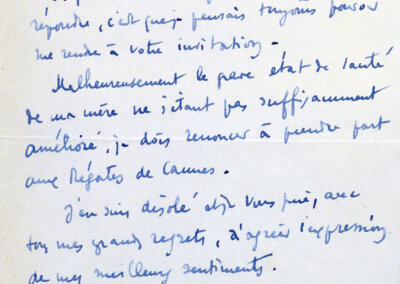 répondre, c'est que je pensais toujours pouvoir
me rendre à votre invitation.
Malheureusement le grave état de santé
de ma mère ne s'étant pas suffisamment
amélioré, je dois renoncer à prendre part
aux Régates de Cannes.
J'en suis désolé et je vous prie, avec
tous mes grands regrets, d'agréer l'expression
de mes meilleurs sentiments.